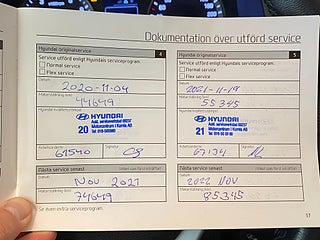 Dokumentation över utförd service
Hyundai originalservice 4
Service utförd enligt Hyundais serviceprogram.
Normal service
Flex service
Datum
2020-11-04
Mätarställning (km)
44649
HYUNDAI
20
Arbetsorder nr
61540
Signatur
Nästa service senast
Datum
Nov 2021
Mätarställning (km)
74649
Hyundai originalservice 5
Service utförd enligt Hyundais serviceprogram.
Normal service
Flex service
Datum
2021-11-19
Mätarställning (km)
55345
HYUNDAI
21
Arbetsorder nr
67134
Signatur
Nästa service senast
Datum
2022 NOV
Mätarställning (km)
85345
Se även extra serviceprogram.
17